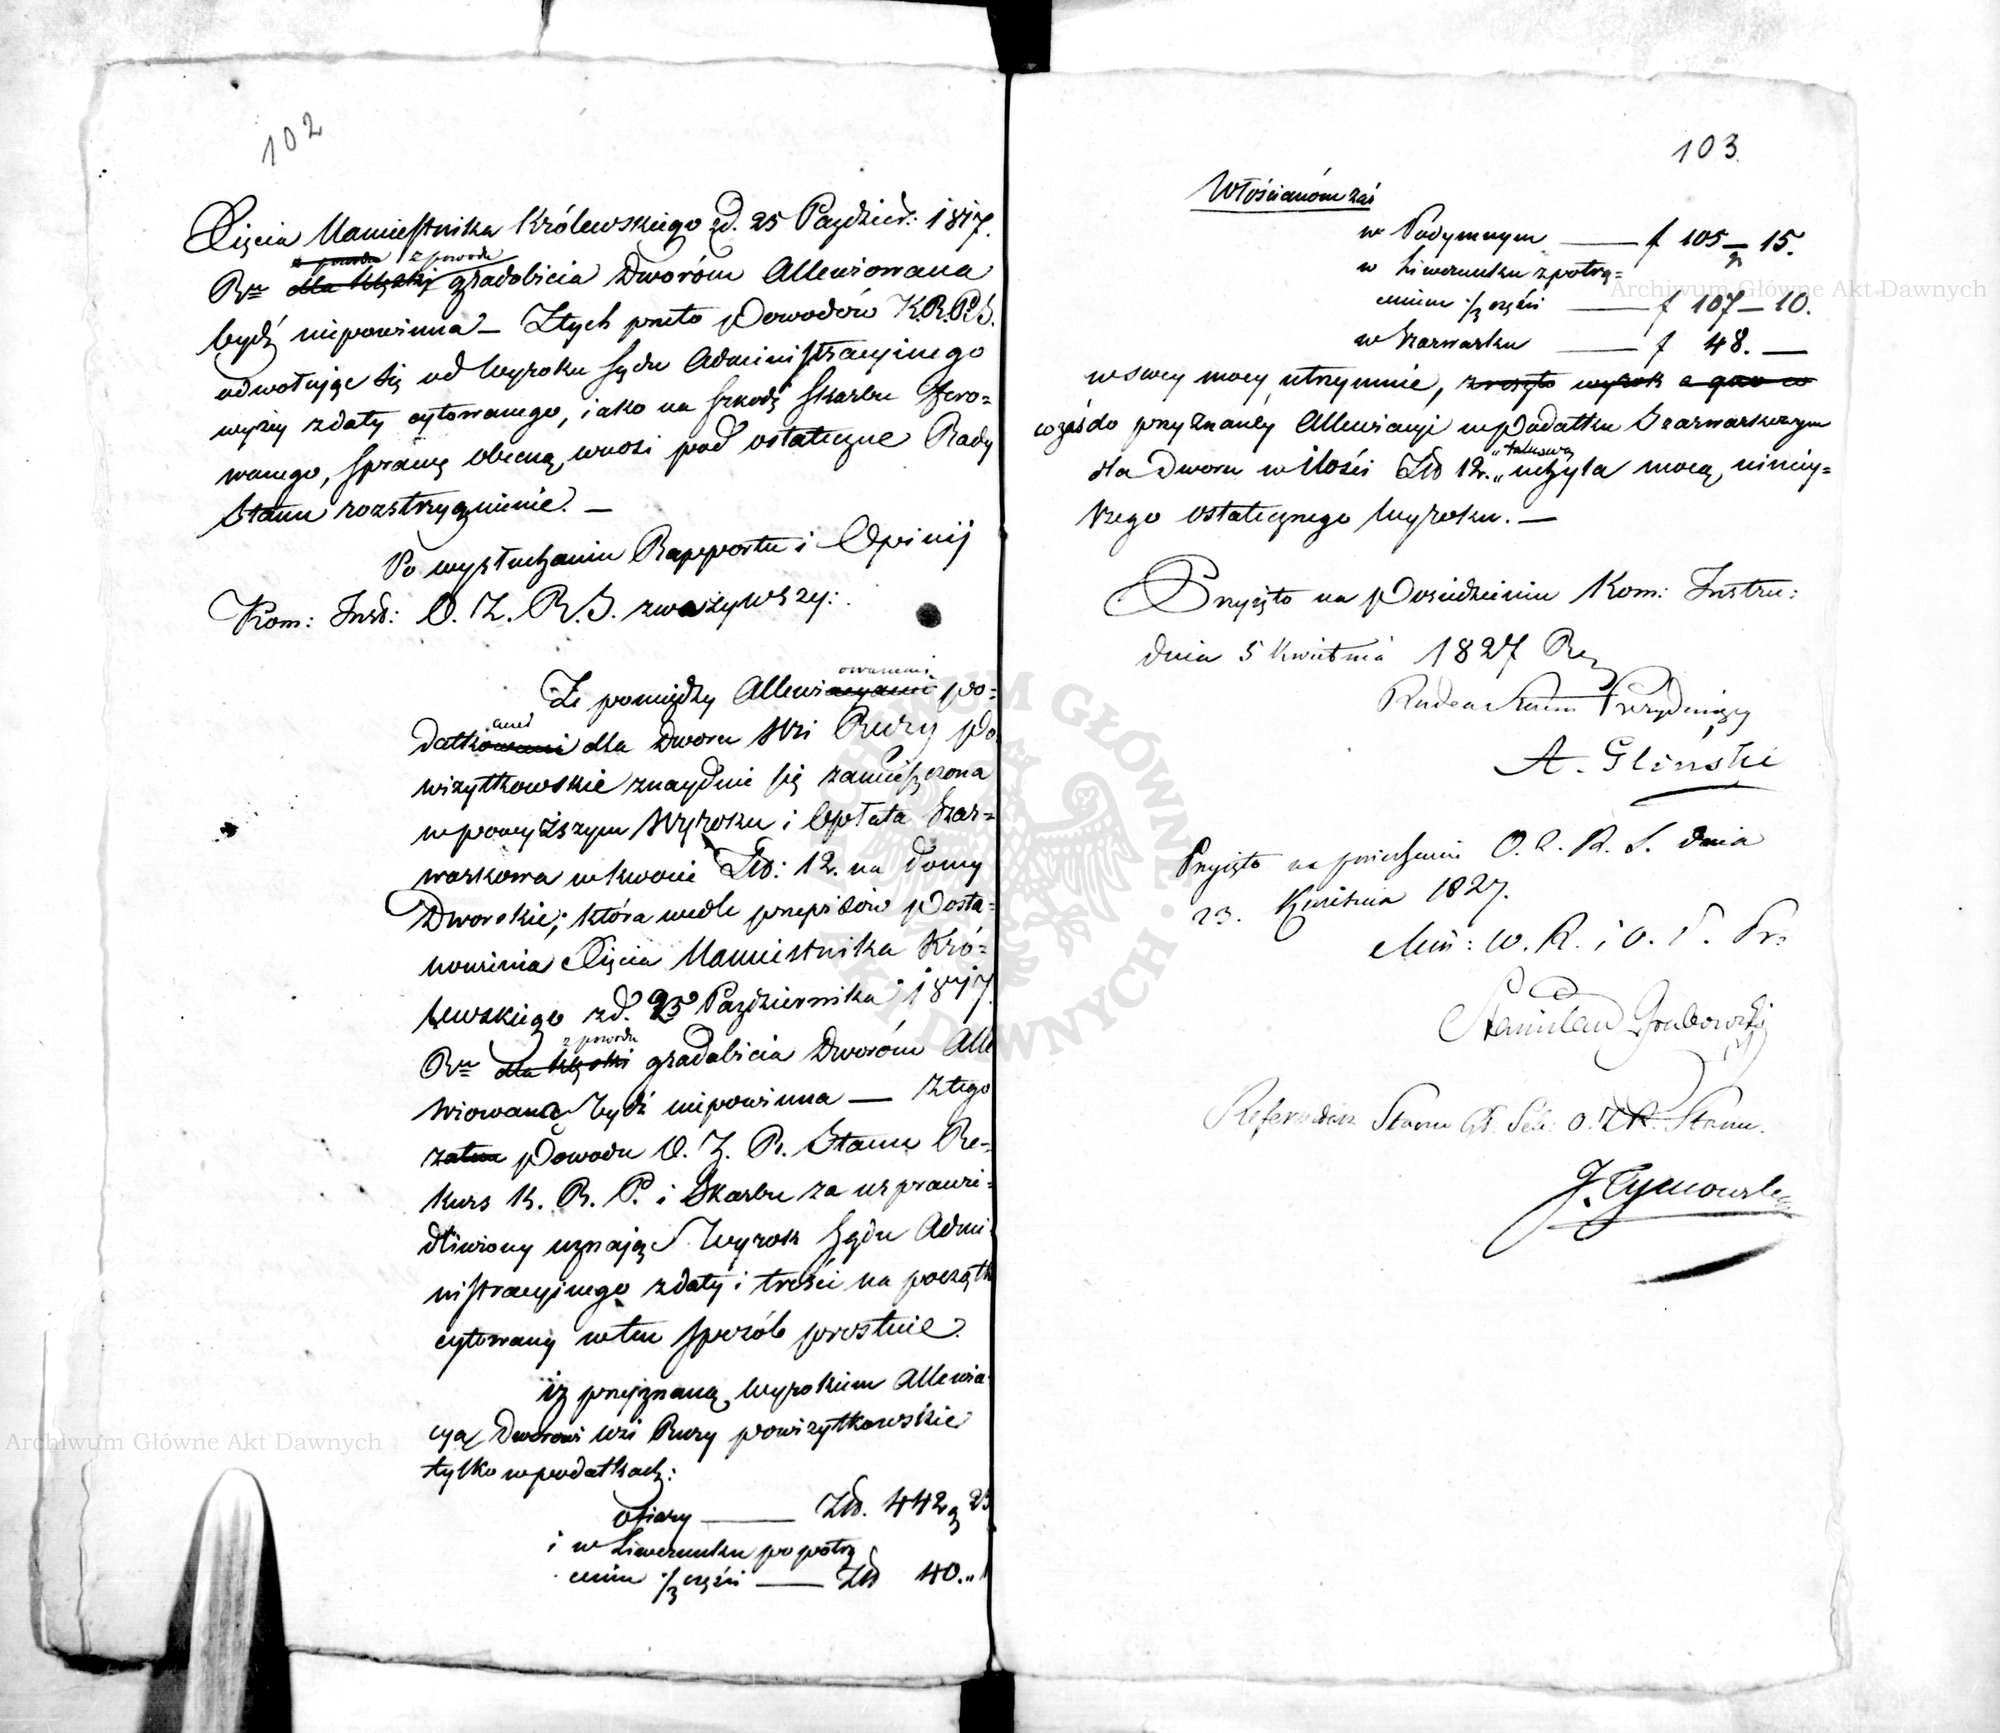 102
Xięcia Namiestnika Królewskiego zd. 25 Paździer: 1817.
z powodu
Ru dla klęski gradobicia Dworóm Allewiowana
bydź niepowinna — Ztych przeto Powodów K.R.P.S.
odwołując się od Wyroku Sądu Administracyinego
wyżey zdaty cytowanego, iako na szkodę Skarbu fero=
wanego, sprawę obecną, wnosi pod ostateczne Rady
Stanu rozstrzygnienie. —
Po wysłuchaniu Rapportu i Opinij
Kom: Inst: O. Z. R. S. zważywszy:
owanemi
Że pomiędzy Allewiacyami po=
ami
datkowemi dla Dworu Wsi Rury po
wizytkowskie znayduie się zamieszczona
w powyższym Wyroku i Opłata Szar=
warkowa w kwocie Złb: 12. na domy
Dworskie; która wedle przepisów Posta=
nowienia Xięcia Namiestnika Kró=
lewskiego zd. 25 Października 1817
z powodu
Ru dla klęski gradobicia Dworóm Alle
wiowaną bydź niepowinna — Ztego
zatem Powodu O. Z. R. Stanu Re=
kurs K. R. P. i Skarbu za usprawie=
dliwiony uznaiąc Wyrok Sądu Admi=
nistracyinego zdaty i treści na począth
cytowany w ten sposób prostuie.
iż przyznaną Wyrokiem Allewia=
cyą Dworowi Wsi Rury powizytkowskie
tylko w podatkach:
ofiary —— Złb. 442 g 23
i w Liwerunku po potrą
ceniu ⅓ części —— Złb 40.„
103.
Włościanóm zaś
w Podymnym —— f 105 — 15.
gr
w Liwerunku z potrą=
ceniem ⅓ części —— f 107 — 10.
w Szarwarku —— f 48. —
w swey mocy utrzymuie, zresztą wyrok a
co zaś do przyznaney Allewiacyi w Podatku Szarwarkowym
„takową
dla Dworu w ilości Złb 12. „uchyla mocą niniey=
szego ostatecznego Wyroku. —
Przyięto na Posiedzeniu Kom: Instru:
dnia 5 Kwietnia 1827 R
Radca Stanu Prezyduiący
A. Gliński
Przyięto na posiedzeniu O. Z. R. S. dnia
23. Kwietnia 1827.
Min: W. R. i O. P. Pr:
Stanisław Grabowski
Referendarz Stanu Gł. Sek: O. Z. R. Stanu.
J. Tymowski
Archiwum Główne Akt Dawnych
Archiwum Główne Akt Dawnych
ARCHIWUM GŁÓWNE AKT DAWNYCH